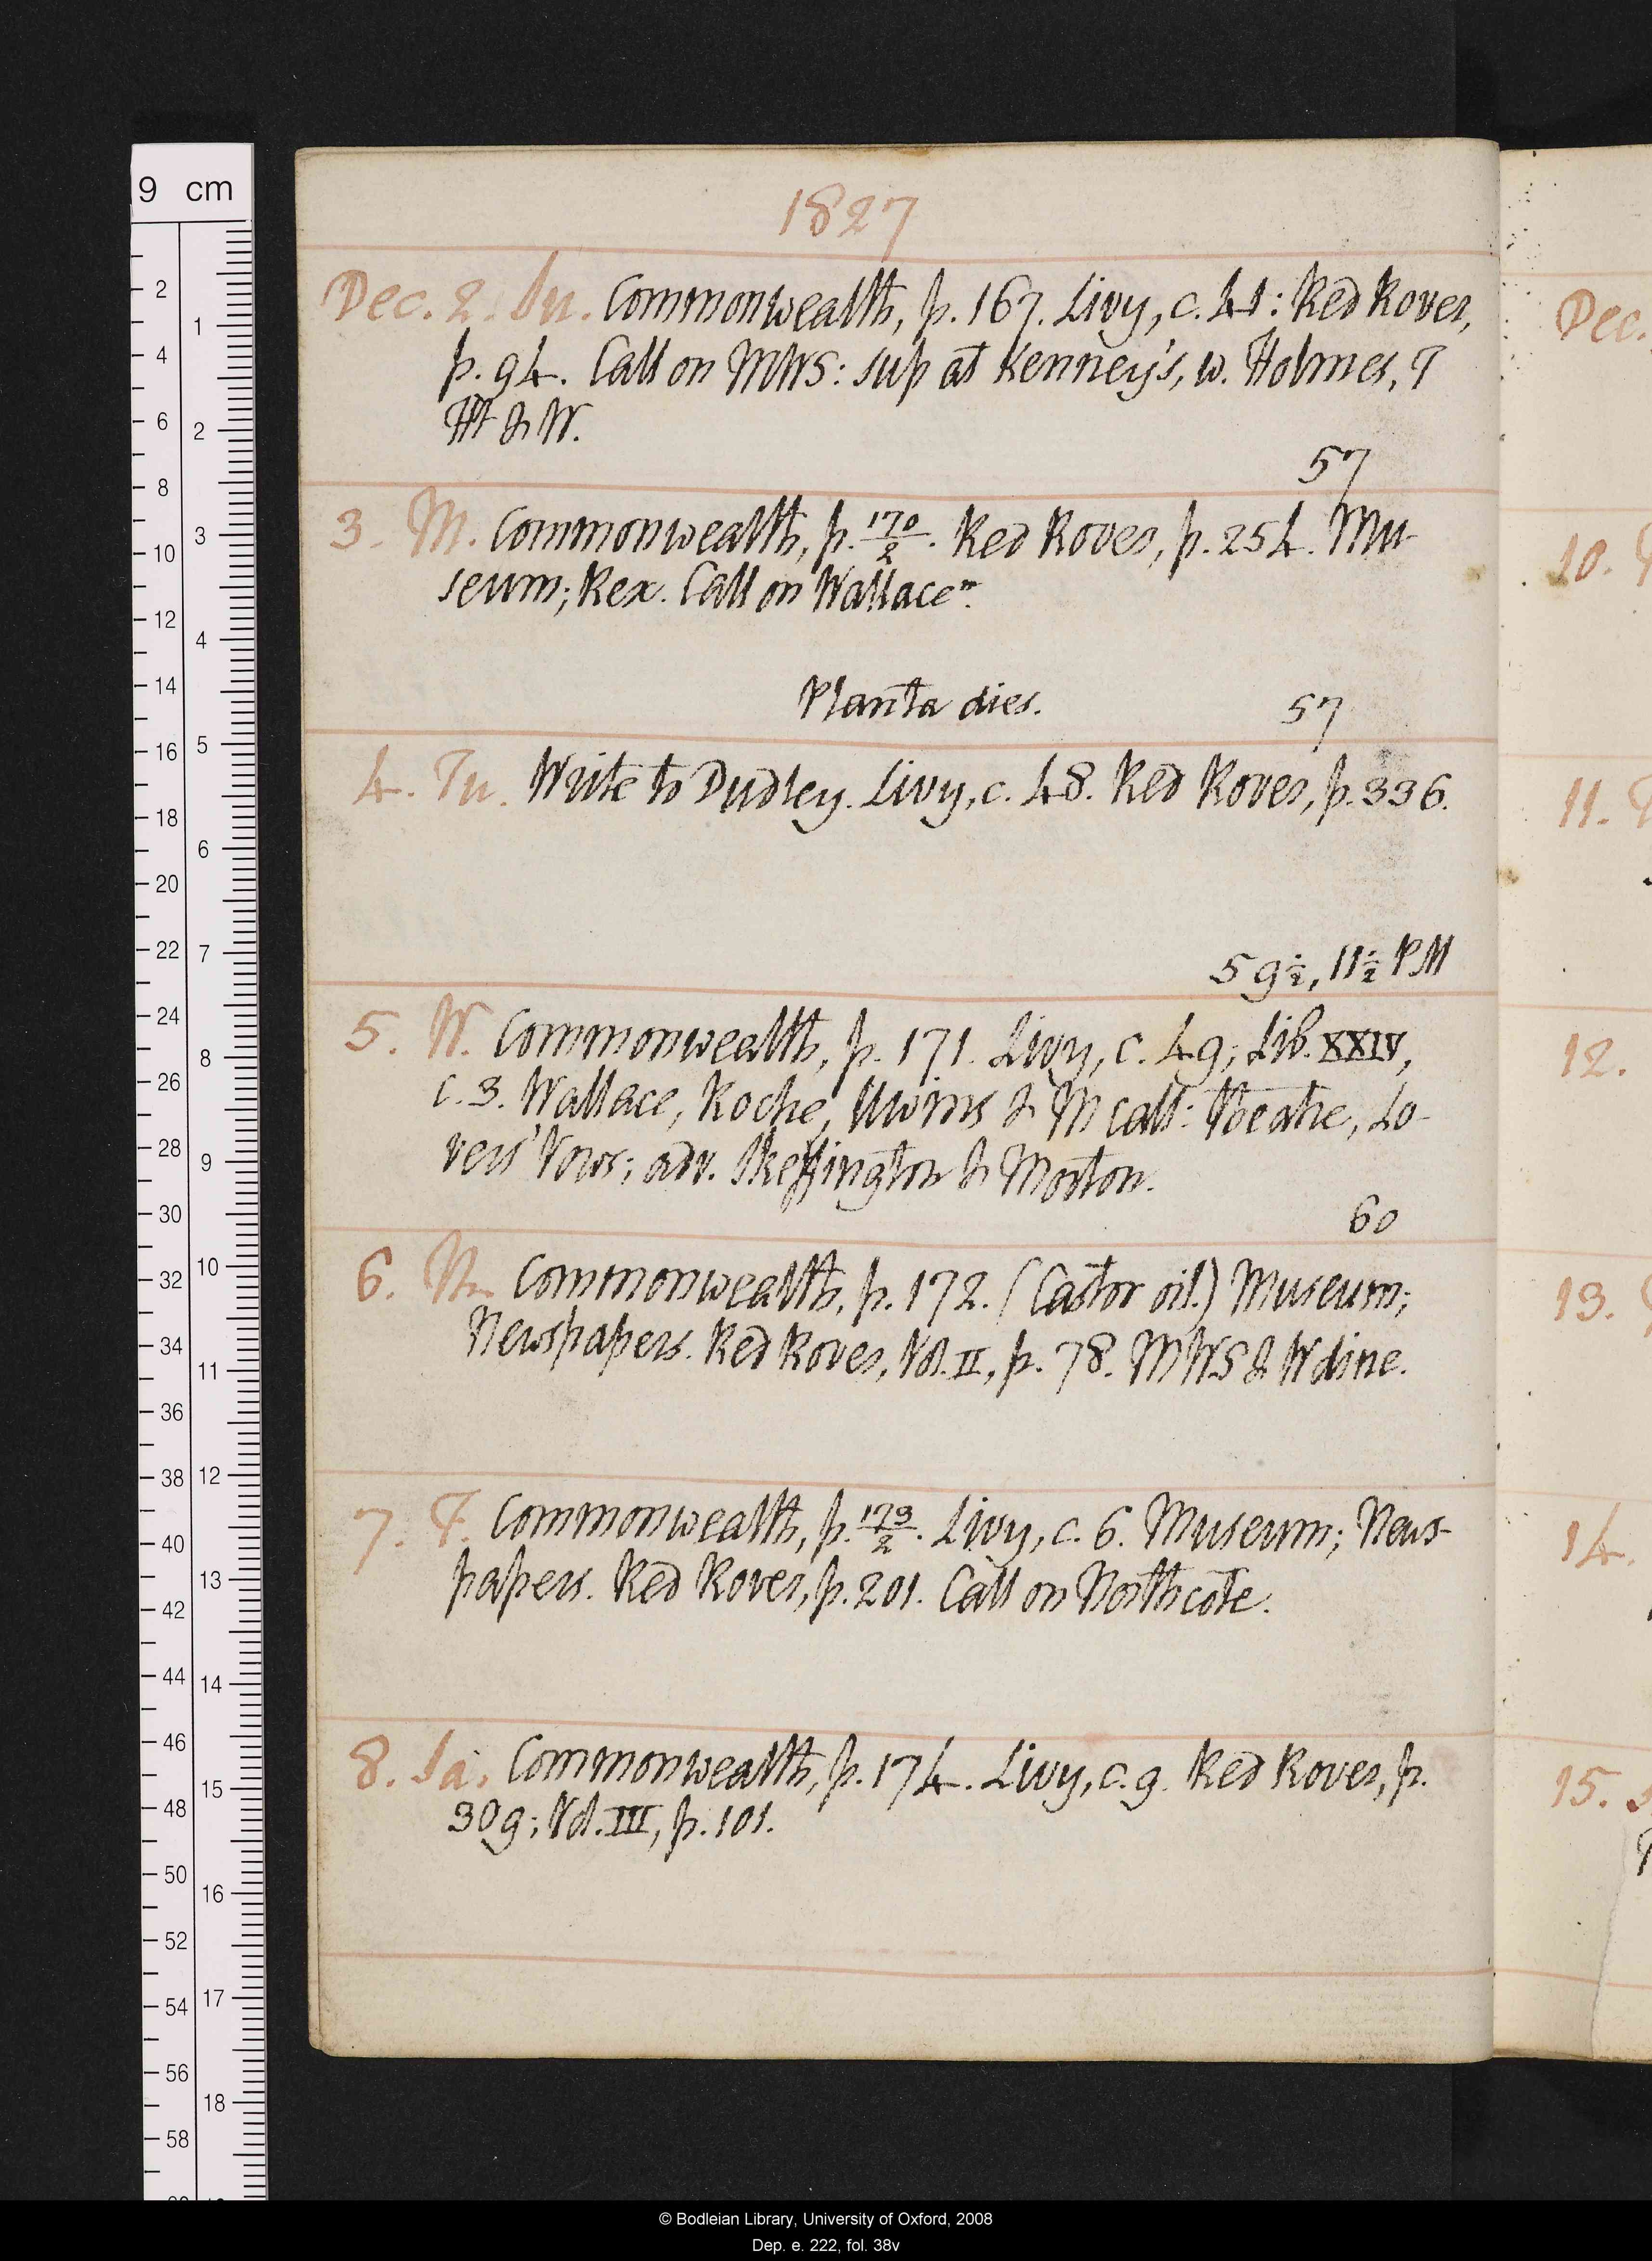 1827
Dec. 2. Su. Commonwealth, p. 167. Livy, c. 41: Red Rover,
p. 94. Call on MWS: sup at Kenney's, w. Holmes, T
Ht & W.
57
3. M. Commonwealth, p. 170/2. Red Rover, p. 254. Mu-
seum; Rex. Call on Wallace n.
Planta dies. 57
4. Tu. Write to Dudley. Livy, c. 48. Red Rover, p. 336.
59½, 11½ PM
5. W. Commonwealth, p. 171. Livy, c. 49; Lib. XXIV,
c. 3. Wallace, Roche, Uwins & M call: Theatre, Lo-
vers' Vows; adv. Skeffington & Morton.
60
6. Th. Commonwealth, p. 172. (Castor oil.) Museum;
Newspapers. Red Rover, Vol. II, p. 78. MWS & W dine.
7. F. Commonwealth, p. 173/2. Livy, c. 6. Museum; News-
papers. Red Rover, p. 201. Call on Northcote.
8. Sa. Commonwealth, p. 174. Livy, c. 9. Red Rover, p.
309; Vol. III, p. 101.
Dec.
10.
11.
12.
13.
14.
15.
9 cm
2
4
6
8
10
12
14
16
18
20
22
24
26
28
30
32
34
36
38
40
42
44
46
48
50
52
54
56
58
1
2
3
4
5
6
7
8
9
10
11
12
13
14
15
16
17
18
© Bodleian Library, University of Oxford, 2008
Dep. e. 222, fol. 38v